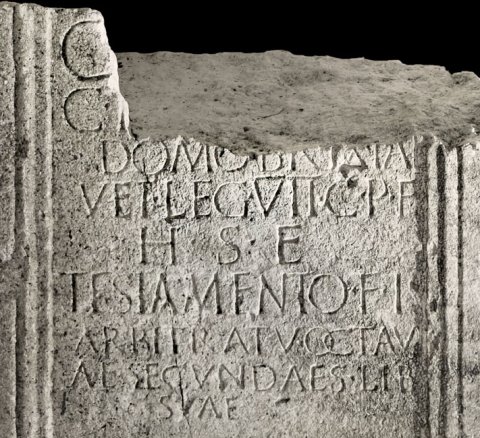 C
C
DOMO BRIXIA
VET LEG VII C·P·F
H S·E
TESTAMENTO·F·I
ARBITRATV OCTAV
AE SECVNDAES·LIB
SVAE